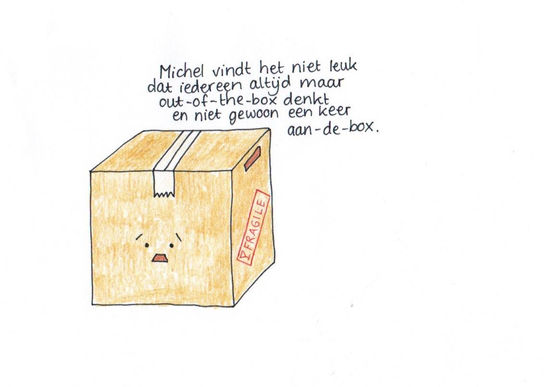 Michel vindt het niet leuk
dat iedereen altijd maar
out-of-the-box denkt
en niet gewoon een keer
aan-de-box.
FRAGILE